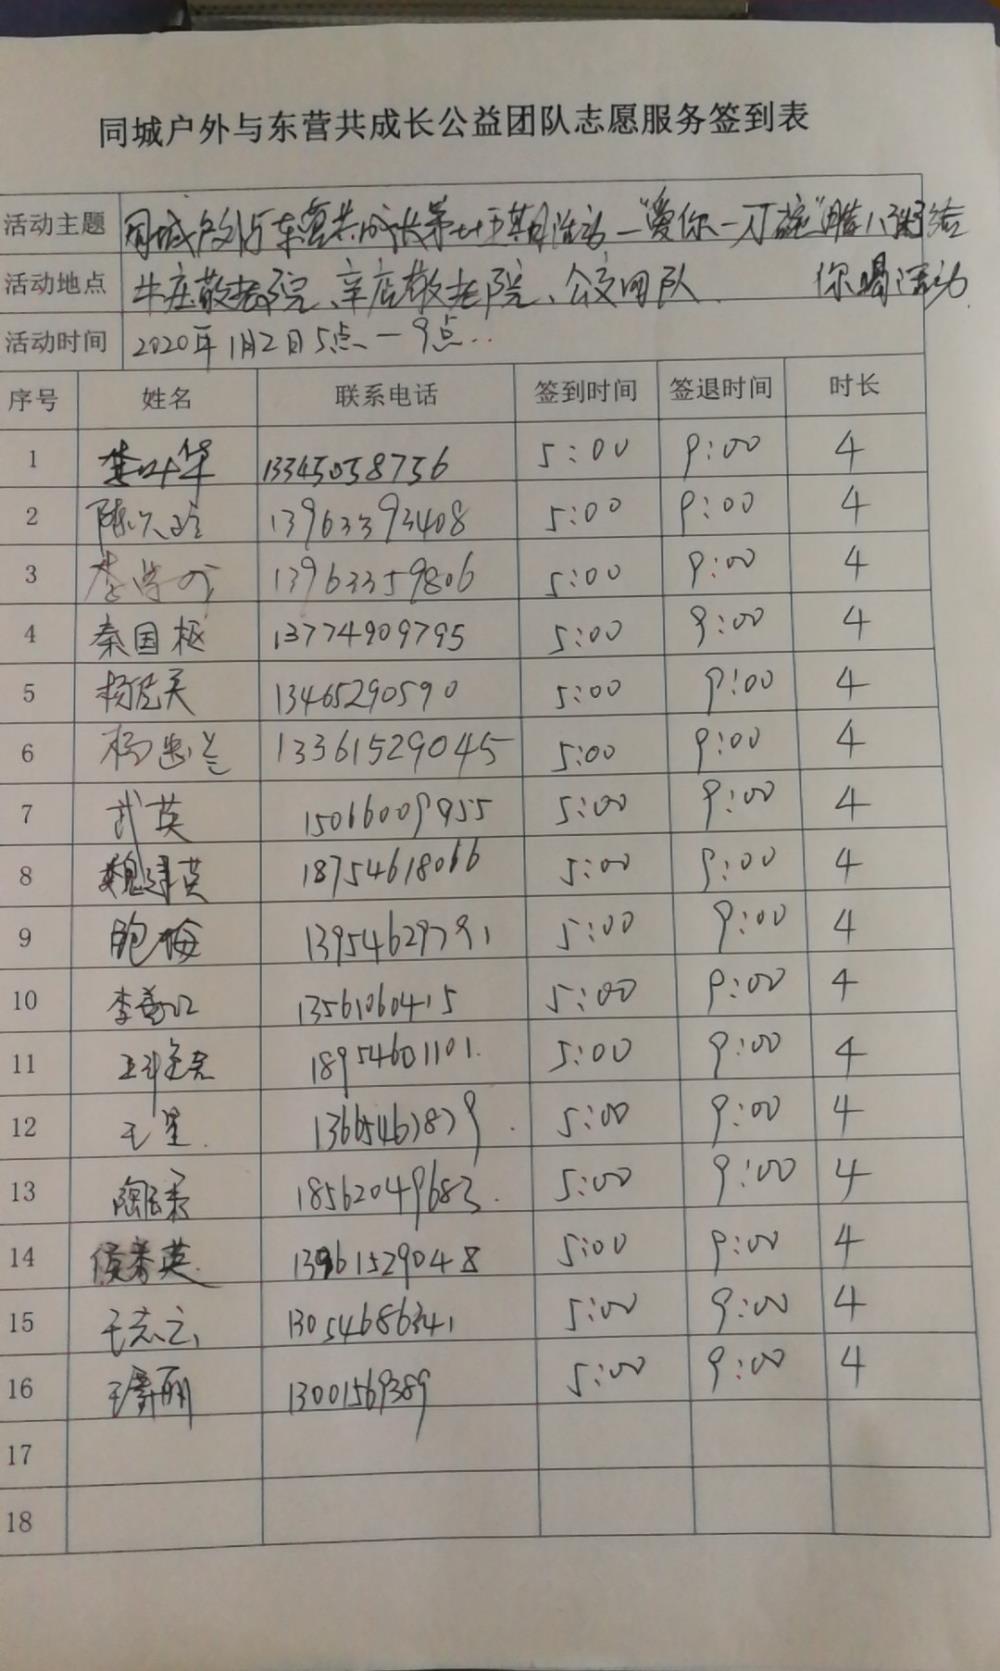 同城户外与东营共成长公益团队志愿服务签到表
活动主题 同城户外与东营共成长第七十五期活动—"爱你一万碗"腊八粥给
活动地点 牛庄敬老院、辛店敬老院、公交团队 你喝活动
活动时间 2020年1月2日5点—9点..
序号 姓名 联系电话 签到时间 签退时间 时长
1 李叶华 13345058756 5:00 9:00 4
2 13963393408 5:00 9:00 4
3 13963359806 5:00 9:00 4
4 秦国枢 13774909795 5:00 9:00 4
5 13465290590 5:00 9:00 4
6 13361529045 5:00 9:00 4
7 武英 15066009955 5:00 9:00 4
8 魏建英 18754618066 5:00 9:00 4
9 鲍梅 13954629791 5:00 9:00 4
10 13561060415 5:00 9:00 4
11 18954601101. 5:00 9:00 4
12 王星. 13665467879. 5:00 9:00 4
13 18562049683. 5:00 9:00 4
14 侯秀英 5:00 9:00 4
15 王志云 13054686341 5:00 9:00 4
16 13001569389 5:00 9:00 4
17
18